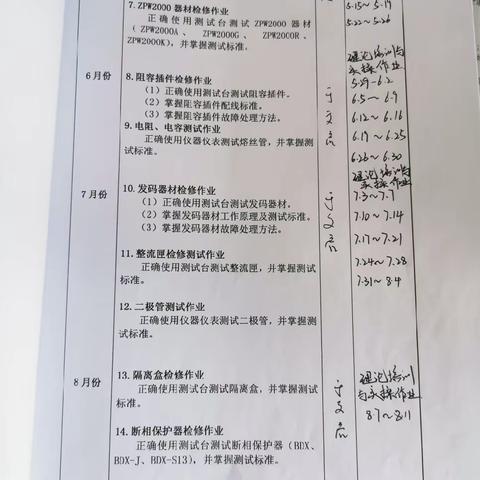 7.ZPW2000 器材检修作业
正确使用测试台测试 ZPW2000 器材
(ZPW2000A、ZPW2000G、ZPW2000R、
ZPW2000K),并掌握测试标准。
5.15~5.19
5.22~5.26
6 月份
8.阻容插件检修作业
(1)正确使用测试台测试阻容插件。
(2)掌握阻容插件配线标准。
(3)掌握阻容插件故障处理方法。
9.电阻、电容测试作业
正确使用仪器仪表测试熔丝管,并掌握
测试标准。
理论培训与
实操作业
5.29~6.2
6.5~6.9
6.12~6.16
6.19~6.25
6.26~6.30
7 月份
10.发码器材检修作业
(1)正确使用测试台测试发码器材。
(2)掌握发码器材工作原理及测试标准。
(3)掌握发码器材故障处理方法。
11.整流匣检修测试作业
正确使用测试台测试整流匣,并掌握测试
标准。
12.二极管测试作业
正确使用仪器仪表测试二极管,并掌握测
试标准。
理论培训与
实操作业
7.3~7.7
7.10~7.14
7.17~7.21
7.24~7.28
7.31~8.4
8 月份
13.隔离盒检修作业
正确使用测试台测试隔离盒,并掌握测试
标准。
14.断相保护器检修作业
正确使用测试台测试断相保护器(BDX、
BDX-J、BDX-S13),并掌握测试标准。
理论培训
与实操作业
8.7~8.11